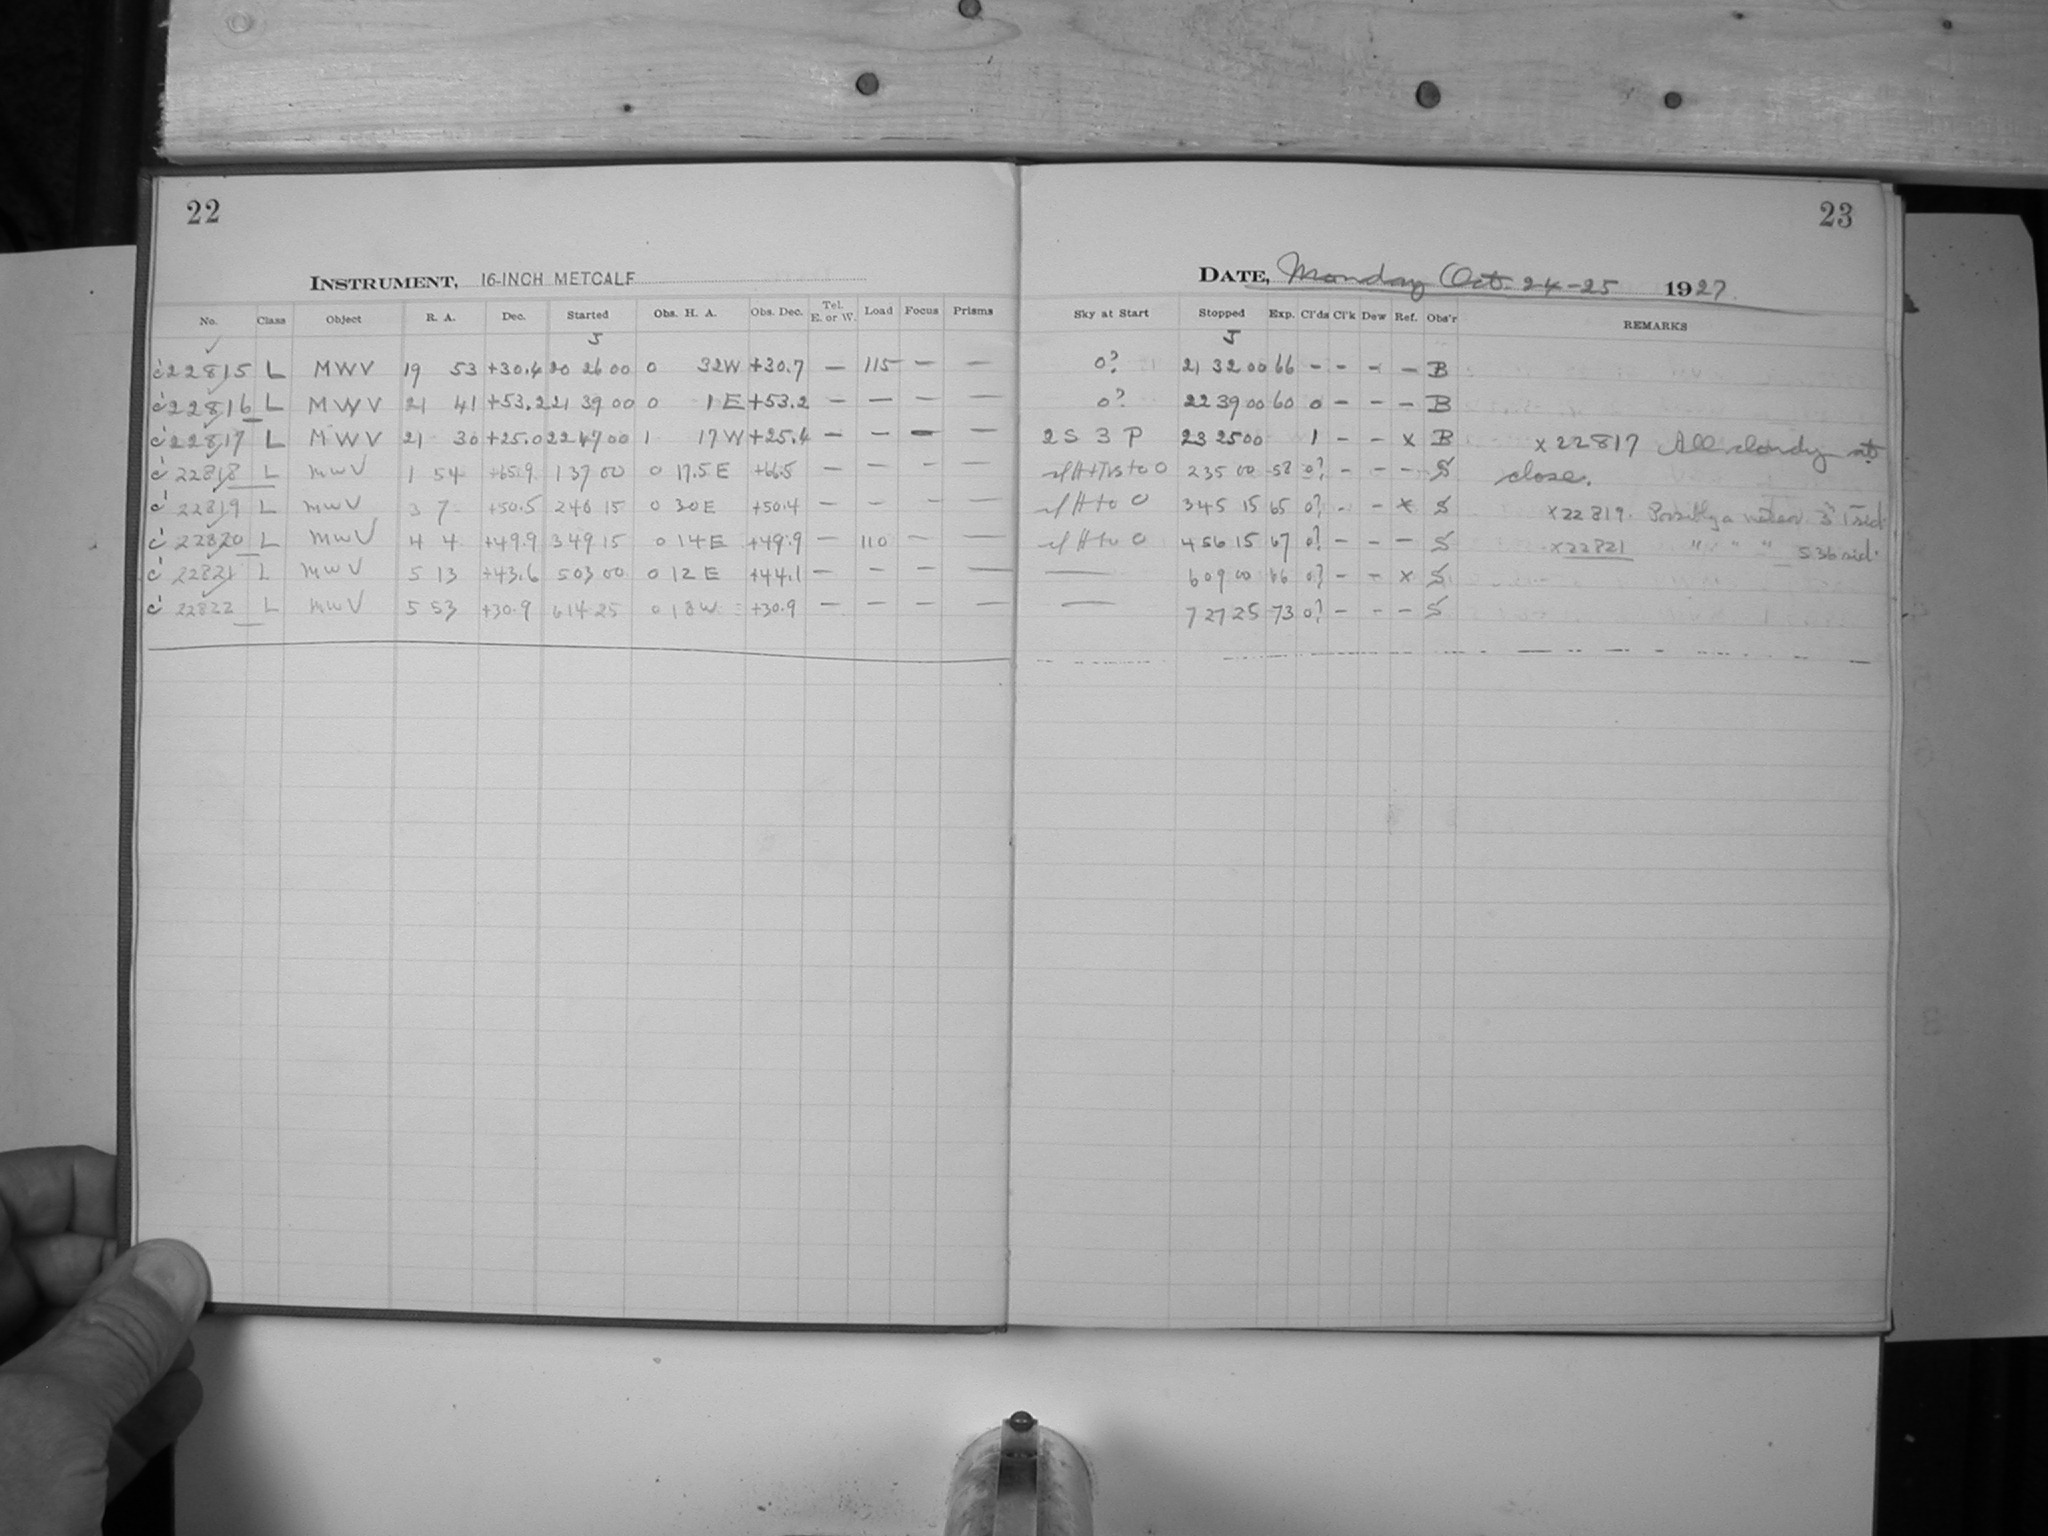 22
INSTRUMENT, 16-INCH METCALF
No. Class Object R. A. Dec. Started Obs. H. A. Obs. Dec. Tel. E. or W. Load Focus Prisms
S
22815 L MWV 19 53 +30.4 20 26 00 0 32W +30.7 — 115 — —
22816 L MWV 21 41 +53.2 21 39 00 0 1 E +53.2 — — — —
22817 L MWV 21 30 +25.0 22 47 00 1 17 W +25.4 — — — —
22818 L MWV 1 54 +65.9 1 37 00 0 17.5 E +66.5 — — — —
22819 L MWV 3 7 +50.5 2 40 15 0 30 E +50.4 — — — —
22820 L MWV 4 4 +49.9 3 49 15 0 14 E +49.9 — 110 — —
22821 L MWV 5 13 +43.6 5 03 00 0 12 E +44.1 — — — —
22822 L MWV 5 53 +30.9 6 14 25 0 18 W +30.9 — — — —
23
DATE, Monday Oct. 24-25 1927
Sky at Start Stopped Exp. Cl'ds Cl'k Dew Ref. Obs'r REMARKS
S
0? 21 32 00 66 - - - - B
0? 22 39 00 60 0 - - - B
2 S 3 P 23 25 00 1 - - x B x 22817 All cloudy at
to 0 2 35 00 58 0? - - - S close.
to 0 3 45 15 65 0? - - x S x 22819. Possibly a meteor sid.
to 0 4 56 15 67 0? - - - S x 22821 " " " 5.36 sid.
— 6 09 00 66 0? - - x S
— 7 27 25 73 0? - - - S